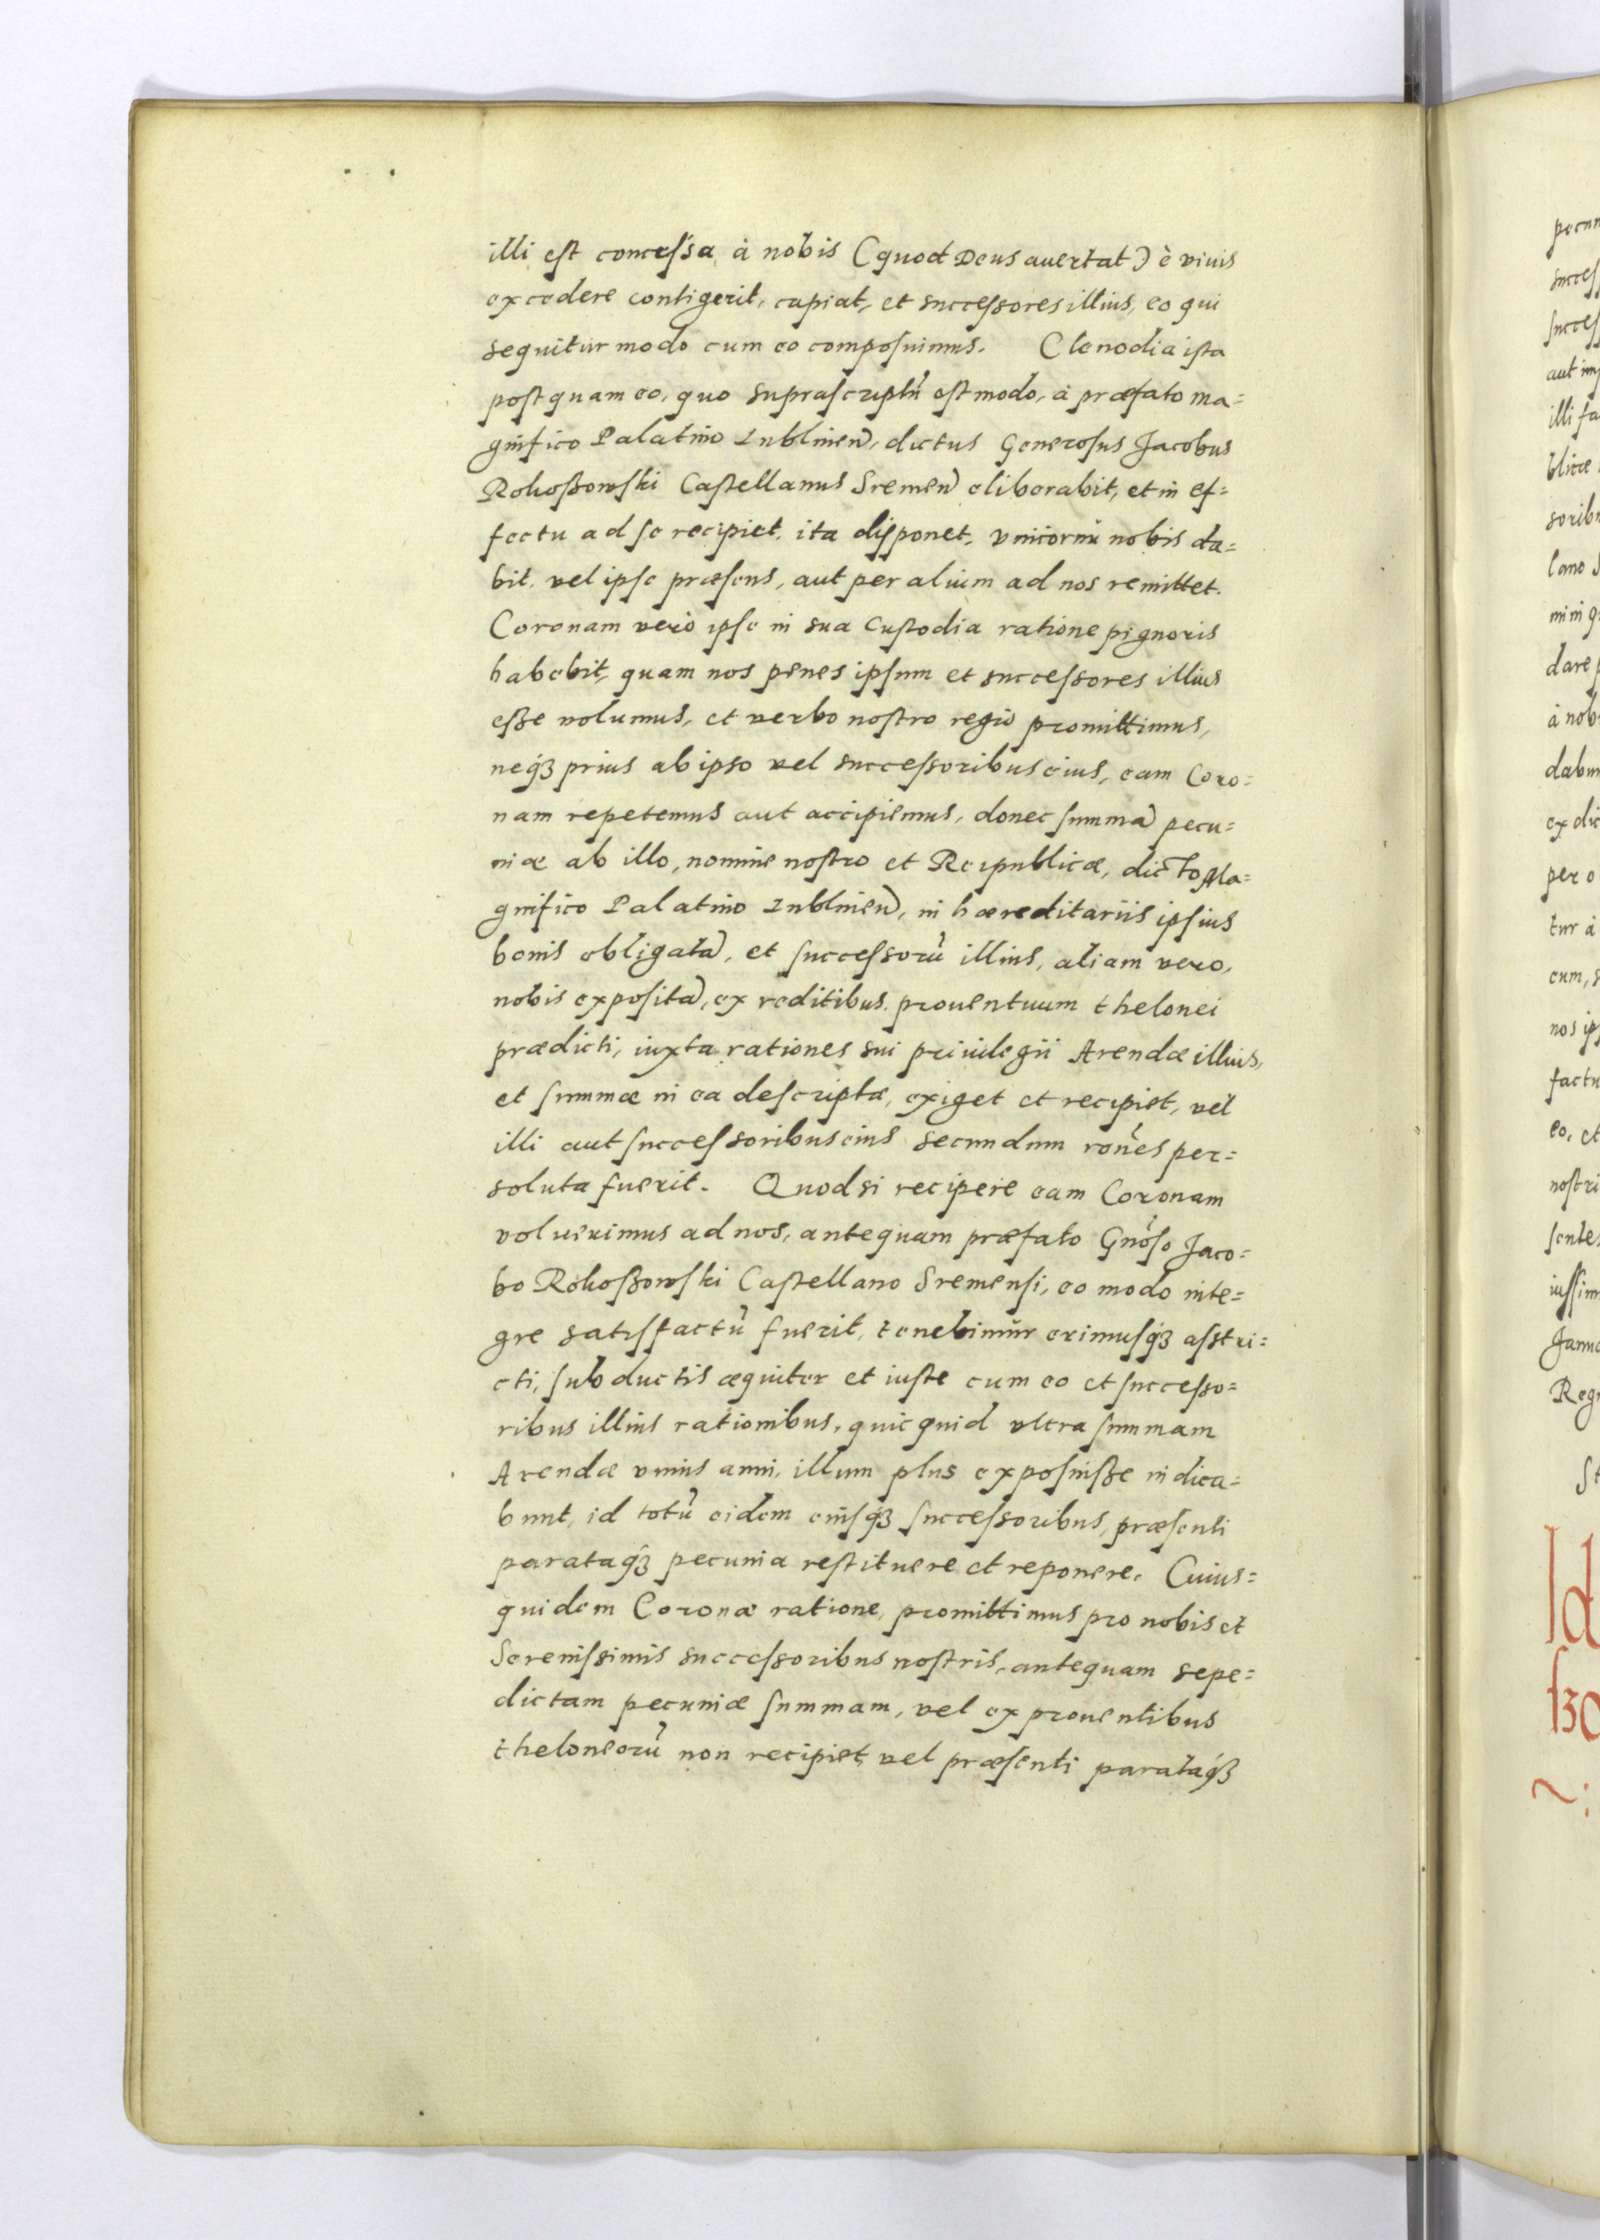 illi est concessa à nobis (quod Deus auertat) è viuis
excedere contigerit, capiat, et successores illius, eo qui
sequitur modo cum eo composuimus. Clenodia ista
postquam eo, quo suprascriptũ est modo, à præfato ma=
gnifico Palatino Lublinen̄, dictus Generosus Jacobus
Rokoßowski Castellanus Sremen̄ eliberabit, et in ef=
fectu ad se recipiet, ita disponet, vnicornũ nobis da=
bit, vel ipse præsens, aut per alium ad nos remittet.
Coronam verò ipse in sua Custodia ratione pignoris
habebit, quam nos penes ipsum et successores illius
eße volumus, et verbo nostro regio promittimus,
neqȝ prius ab ipso vel successoribus eius, eam Coro=
nam repetemus aut accipiemus, donec summā pecu=
niæ ab illo, nomine nostro et Reipublicæ, dicto Ma=
gnifico Palatino Lublinen̄, in hæreditariis ipsius
bonis obligatā, et successorũ illius, aliam vero,
nobis expositā, ex reditibus prouentuum thelonei
prædicti, iuxta rationes sui priuilegii Arendæ illius,
et summæ in ea descriptæ, exiget et recipiet, vel
illi aut successoribus eius secundum ron̄es per=
soluta fuerit. Quodsi recipere eam Coronam
voluerimus ad nos, antequam præfato Gnõso Jaco=
bo Rokoßowski Castellano Sremensi, eo modo inte=
gre satisfactũ fuerit, tenebimur erimusqȝ asstri=
cti, subductis æquiter et iuste cum eo et successo=
ribus illius rationibus, quicquid vltra summam
Arendæ vnius anni, illum plus exposuiße indica=
bunt, id totũ eidem eiusqȝ successoribus, præsenti
parataqȝ pecunia restituere et reponere. Cuius=
quidem Coronæ ratione, promittimus pro nobis et
Serenissimis successoribus nostris, antequam sepe=
dictam pecuniæ summam, vel ex prouentibus
theloneorũ non recipiet, vel præsenti parataqȝ